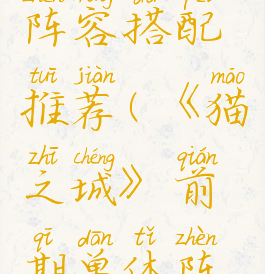 zhèn róng dā pèi
阵容搭配
tuī jiàn māo
推荐(《猫
zhī chéng qián
之城》前
qī dān tǐ zhèn
期单体阵